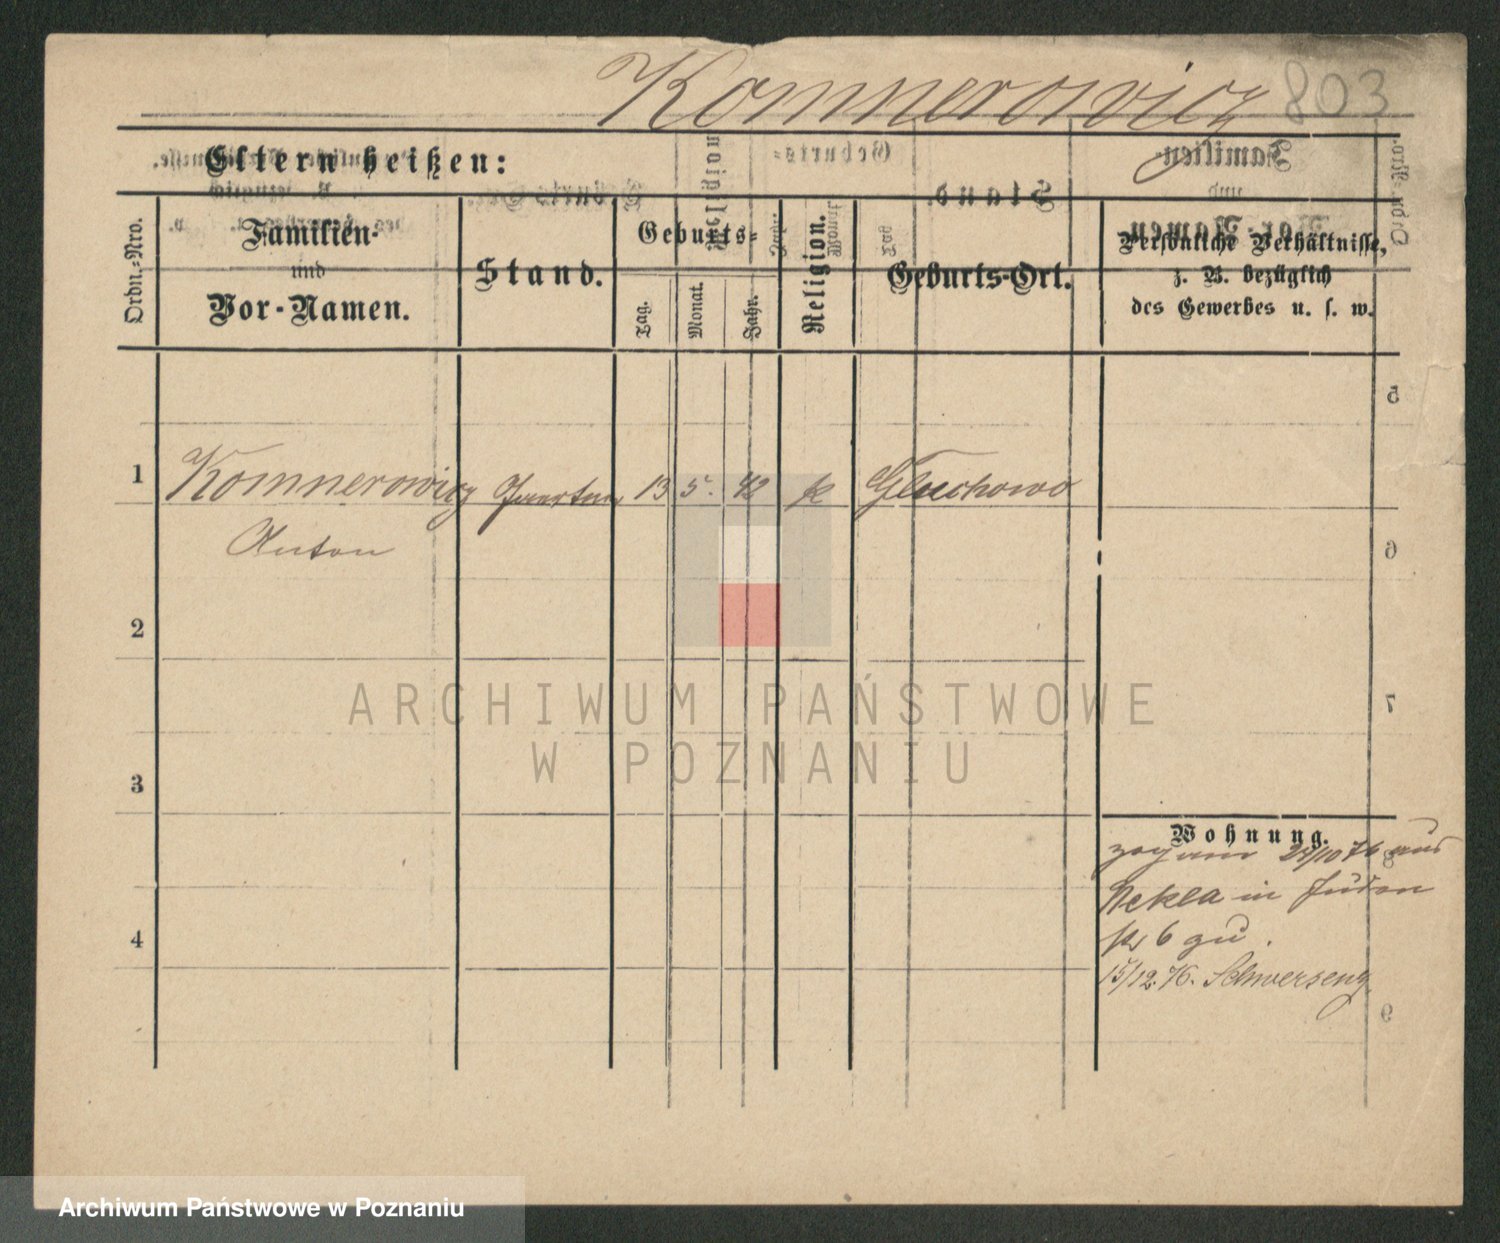 Komnerowicz 803
Eltern heißen:
Ordn.-Nro.
Familien-
und
Vor-Namen.
Stand.
Geburts-
Tag.
Monat.
Jahr.
Religion.
Geburts-Ort.
Persönliche Verhältnisse,
z. B. bezüglich
des Gewerbes u. s. w.
1 Komnerowicz 13 5. 42 k Gluchowo
Anton
2
3
4
Wohnung.
zog am 24/10 76 aus
Nekla in Juden
str 6 zu.
15/12. 76. Schwersenz
ARCHIWUM PAŃSTWOWE
W POZNANIU
Archiwum Państwowe w Poznaniu